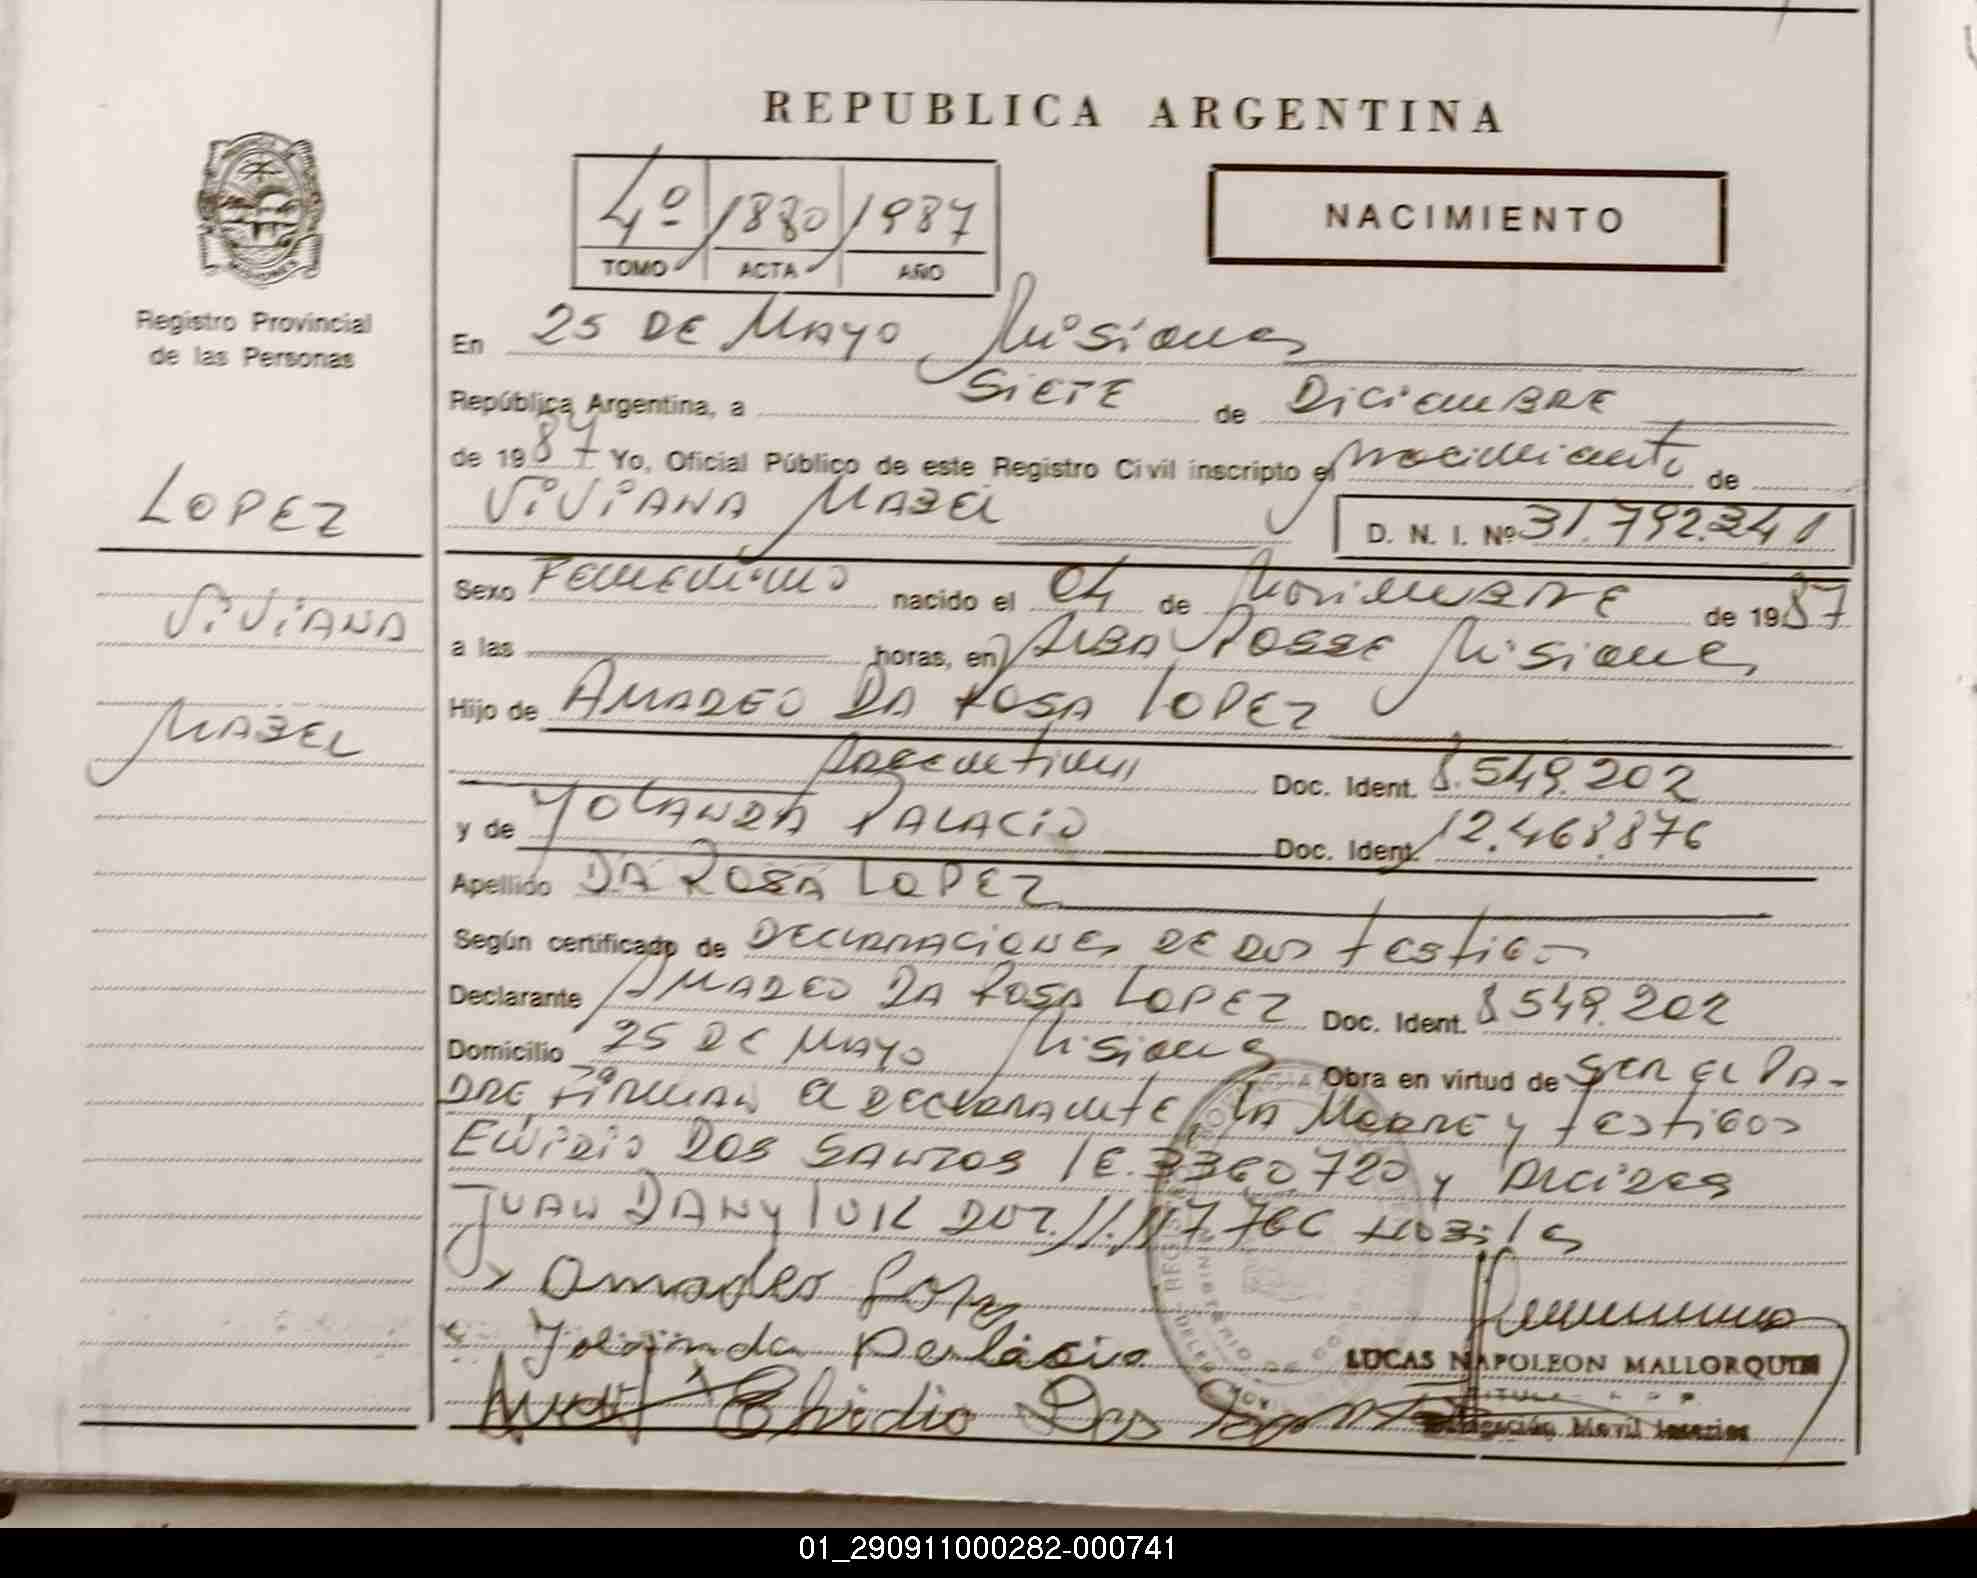 REPUBLICA ARGENTINA
4º 1880 1987
TOMO ACTA AÑO
NACIMIENTO
Registro Provincial
de las Personas
LOPEZ
VIVIANA
MABEL
En 25 DE MAYO Misiones
República Argentina, a SIETE de DICIEMBRE
de 1987 Yo, Oficial Público de este Registro Civil inscripto el nacimiento de
VIVIANA MABEL D. N. I. Nº 31.792.341
Sexo Femenino nacido el 04 de Noviembre de 1987
a las horas, en ALBA POSSE Misiones
Hijo de AMADEO DA ROSA LOPEZ
Argentino Doc. Ident. 8.549.202
y de YOLANDA PALACIO Doc. Ident. 12.468.876
Apellido DA ROSA LOPEZ
Según certificado de DECLARACIONES DE DOS testigos
Declarante AMADEO DA ROSA LOPEZ Doc. Ident. 8549.202
Domicilio 25 DE MAYO Misiones Obra en virtud de SER EL PA-
DRE FIRMAN el DECLARANTE, LA MADRE y testigos
ELVIDIO DOS SANTOS 3360720 y
JUAN DANYLUK
Amadeo Lopez
Yolanda Palacio
Elvidio Dos Santos
LUCAS NAPOLEON MALLORQUIN
TITULAR
Delegación Movil
01_290911000282-000741